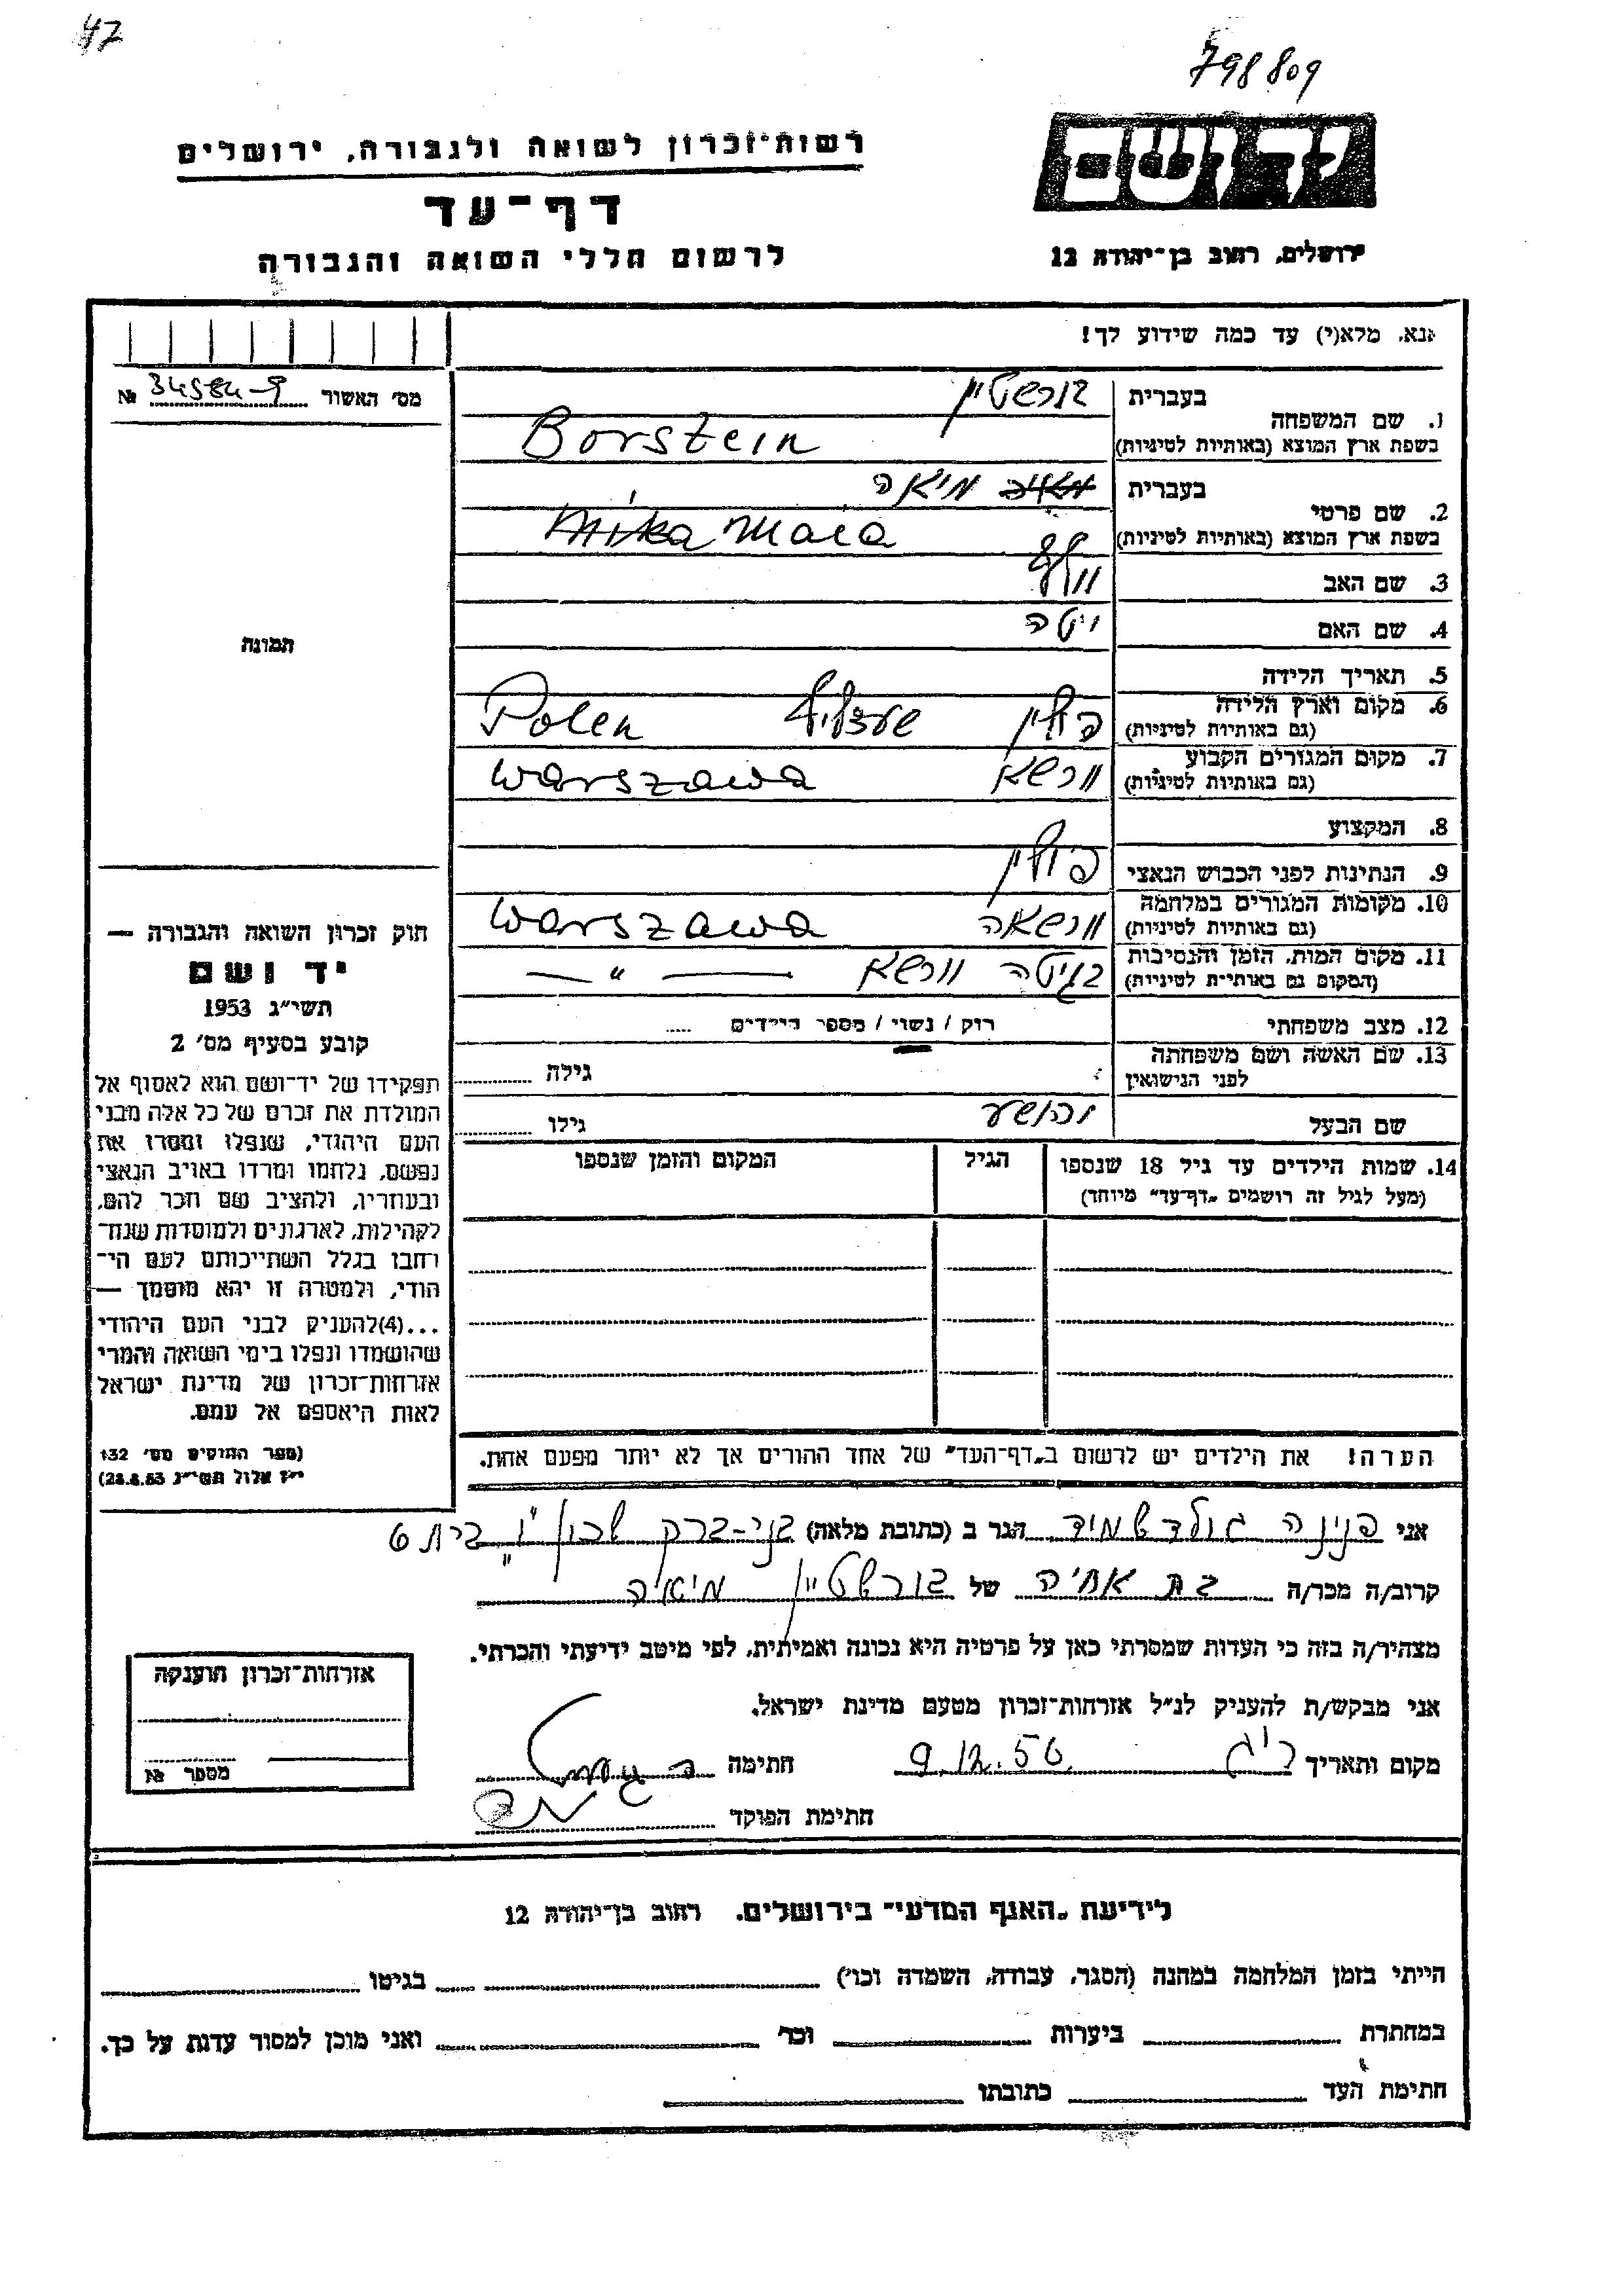 47
798809
יד ושם
ירושלים, רחוב בן־יהודה 12
רשות־זכרון לשואה ולגבורה, ירושלים
דף־עד
לרשום חללי השואה והגבורה
אנא, מלא(י) עד כמה שידוע לך!
מס׳ האשור 34584-9 №
1. שם המשפחה בעברית בורשטיין
בשפת ארץ המוצא (באותיות לטיניות) Borsztein
2. שם פרטי בעברית מיאה
בשפת ארץ המוצא (באותיות לטיניות) Mika Maia
3. שם האב וולף
4. שם האם ויטה
5. תאריך הלידה
6. מקום וארץ הלידה (גם באותיות לטיניות) פולין Polen
7. מקום המגורים הקבוע (גם באותיות לטיניות) וורשא Warszawa
8. המקצוע
9. הנתינות לפני הכבוש הנאצי פולין
10. מקומות המגורים במלחמה (גם באותיות לטיניות) וורשאה Warszawa
11. מקום המות, הזמן והנסיבות (המקום גם באותיות לטיניות) בגיטה וורשא — " —
12. מצב משפחתי רוק / נשוי / מספר הילדים .....
13. שם האשה ושם משפחתה לפני הנישואין גילה
שם הבעל יהושע גילו
14. שמות הילדים עד גיל 18 שנספו הגיל המקום והזמן שנספו
(מעל לגיל זה רושמים „דף־עד" מיוחד)
הערה! את הילדים יש לרשום ב„דף־העד" של אחד ההורים אך לא יותר מפעם אחת.
תמונה
חוק זכרון השואה והגבורה —
יד ושם
תשי״ג 1953
קובע בסעיף מס׳ 2
תפקידו של יד־ושם הוא לאסוף אל
המולדת את זכרם של כל אלה מבני
העם היהודי, שנפלו ומסרו את
נפשם, נלחמו ומרדו באויב הנאצי
ובעוזריו, ולהציב שם וזכר להם,
לקהילות, לארגונים ולמוסדות שנח־
רחבו בגלל השתייכותם לעם הי־
הודי, ולמטרה זו יהא מוסמך —
...(4)להעניק לבני העם היהודי
שהושמדו ונפלו בימי השואה והמרי
אזרחות־זכרון של מדינת ישראל
לאות היאספם אל עמם.
(ספר החוקים מס׳ 132
י״ז אלול תשי״ג 28.8.53)
אני פנינה גולדשמיד הגר ב (כתובת מלאה) בני-ברק שכון "ו" בית 6
קרוב/ה מכר/ה בת אחיה של בורשטיין מיאיה
מצהיר/ה בזה כי העדות שמסרתי כאן על פרטיה היא נכונה ואמיתית, לפי מיטב ידיעתי והכרתי.
אני מבקש/ת להעניק לנ״ל אזרחות־זכרון מטעם מדינת ישראל.
מקום ותאריך 9.12.56 חתימה
חתימת הפוקד
אזרחות־זכרון הוענקה
מספר №
לידיעת „האגף המדעי" בירושלים, רחוב בן־יהודה 12
הייתי בזמן המלחמה במחנה (הסגר, עבודה, השמדה וכו׳) בגיטו
במחתרת ביערות וכו׳ ואני מוכן למסור עדות על כך.
חתימת העד כתובתו